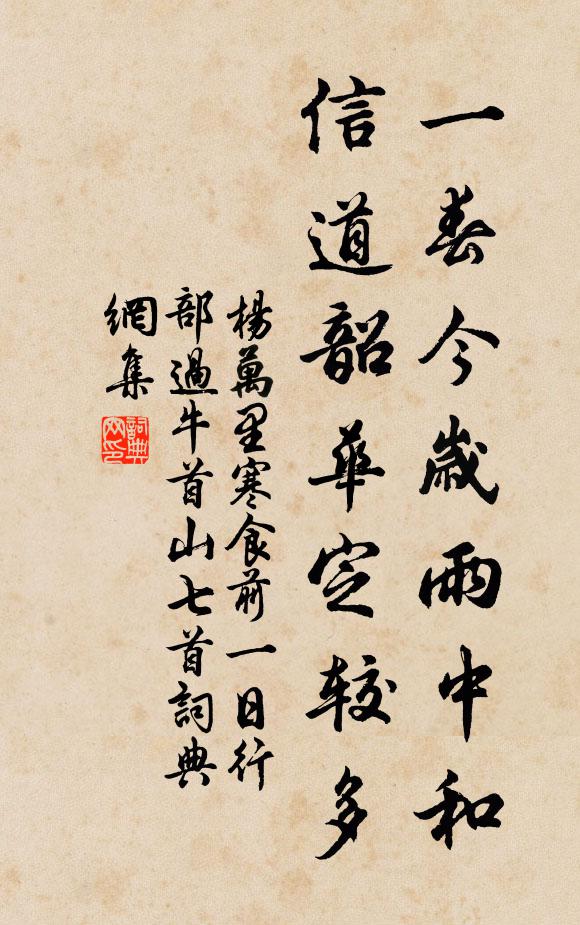 一春今歲雨中和
信道韶華定較多
楊萬里寒食前一日行
部過牛首山七首詞典
網集
詞典
网印